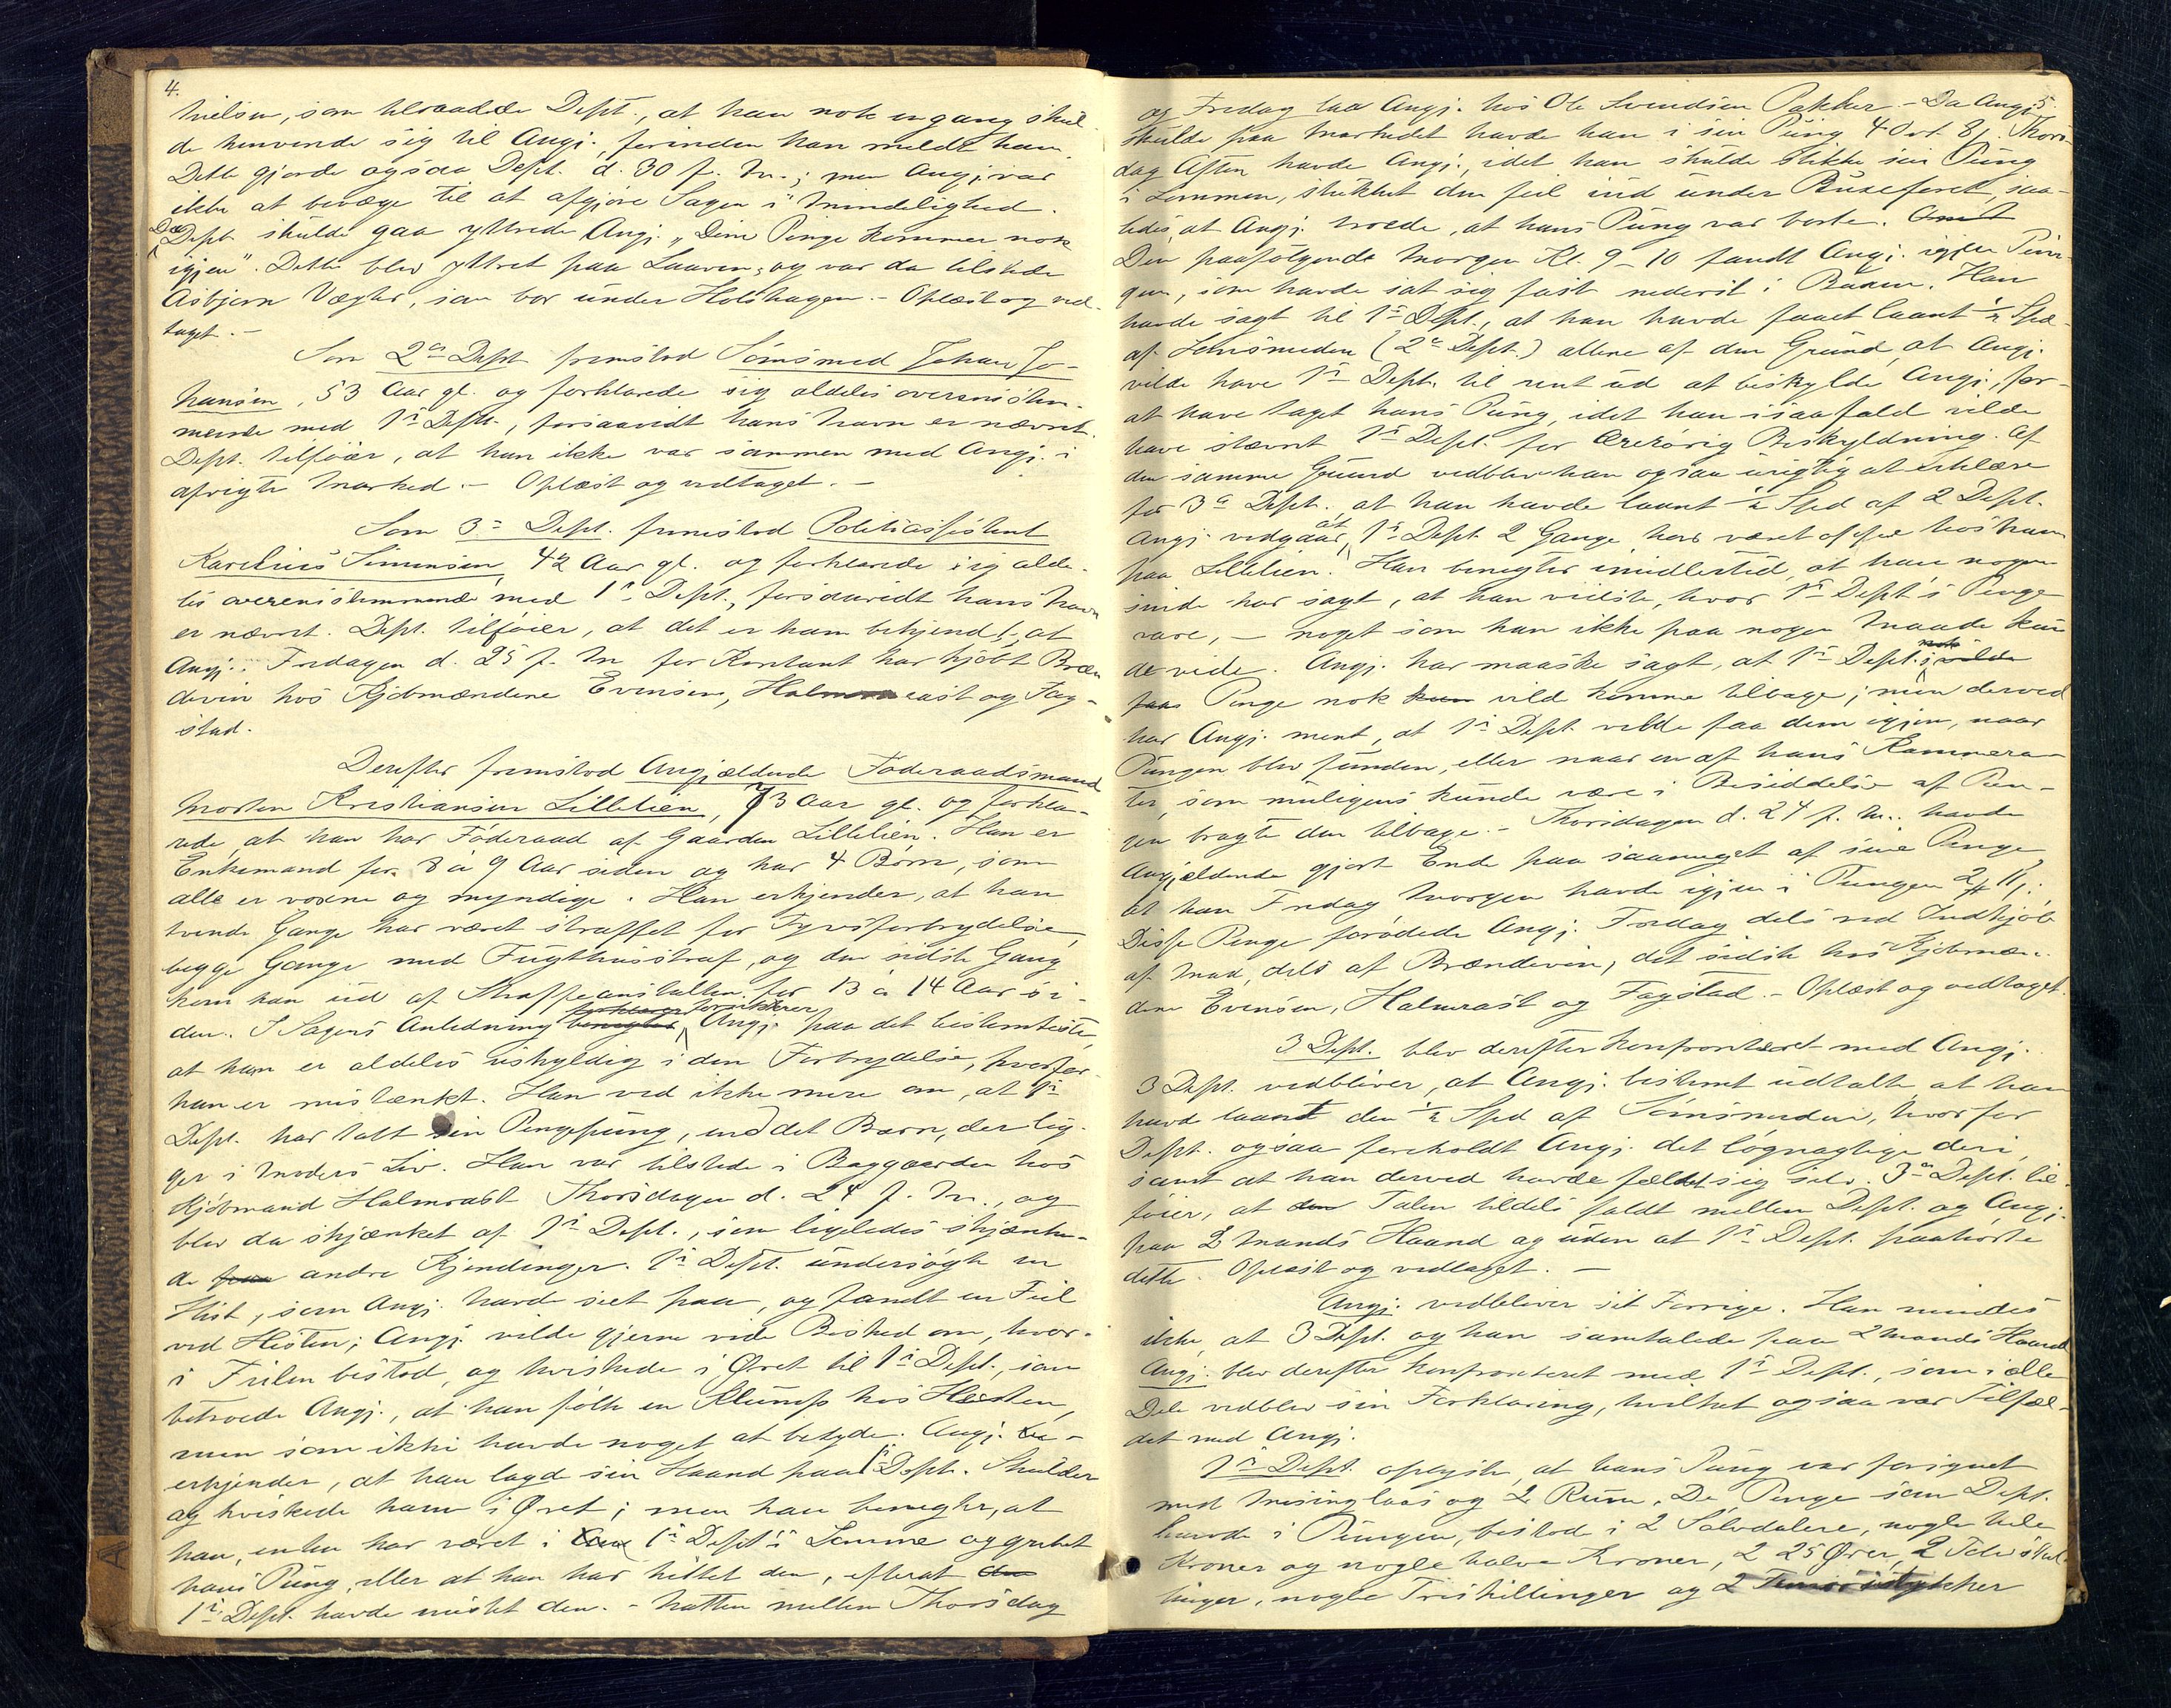 4.
Nielsen, som tilraadede Dept., at han nok engang skul-
de henvende sig til Angj., forinden han meldt ham.
Dette gjorde ogsaa Dept. d. 30 f. M.; men Angj. var
ikke at bevæge til at afgjøre Sagen i Mindelighed.
Da Dept. skulde gaa yttrede Angj. „Dine Penge kommer nok
igjen". Dette blev yttret paa Laaven, og var da tilstede
Asbjørn Vægter, som bor under Holshagen. - Oplæst og ved-
taget. -
Som 2den Dept. fremstod Sömsmed Johan Jo-
hansen, 53 Aar gl. og forklarede sig aldeles overensstem-
mende med 1ste Dept., forsaavidt hans Navn er nævnt.
Dept. tilföier, at han ikke var sammen med Angj. i
afvigte Marked. - Oplæst og vedtaget. -
Som 3die Dept. fremstod Politiassistent
Karelius Simensen, 42 Aar gl. og forklarede sig alde-
les overensstemmende med 1ste Dept., forsaavidt hans Navn
er nævnt. Dept. tilföier, at det er ham bekjendt, at
Angj. Fredagen d. 25 f. M for Kontant har kjöbt Bræn
devin hos Kjöbmændene Evensen, Halmrast og Fag-
stad.
Derefter fremstod Angjældende Föderaadsmand
Morten Kristiansen Lillelien, 73 Aar gl. og forkla-
rede, at han har Föderaad af Gaarden Lillelien. Han er
Enkemand for 8 à 9 Aar siden og har 4 Börn, som
alle er voxne og myndige. Han erkjender, at han
tvende Gange har været straffet for Tyvsforbrydelse,
begge Gange med Tugthusstraf, og den sidste Gang
kom han ud af Straffeanstalten for 13 à 14 Aar si-
den. I Sagens Anledning benegter forklarer forsikkrer Angj. paa det bestemteste,
at han er aldeles uskyldig i den Forbrydelse, hvorfor
han er mistænkt. Han ved ikke mere om, at 1ste
Dept. har tabt sin Pengepung, end det Barn, der lig-
ger i Moders Liv. Han var tilstede i Baggaarden hos
Kjöbmand Halmrast Thorsdagen d. 24 f. M., og
blev da skjænket af 1ste Dept., som ligeledes skjænke-
de andre Kjendinger. 1ste Dept. undersögte en
Hest, som Angj. havde seet paa, og fandt en Feil
ved Hesten; Angj. vilde gjerne vide Besked om, hvor-
i Feilen bestod, og hviskede i Øret til 1ste Dept., som
betroede Angj., at han fölte en Klump hos Hesten,
men som ikke havde noget at betyde. Angj.
erkjender, at han lagde sin Haand paa 1ste Dept. Skulder
og hviskede ham i Øret; men han benegter, at
han, enten har været i 1ste Dept's Lomme og grebet
hans Pung, eller at han har hittet den, efterat
1ste Dept. havde mistet den. - Natten mellem Thorsdag
5.
og Fredag laa Angj. hos Ole Svendsen Pakker. - Da Angj.
skulde paa Markedet havde han i sin Pung 4 Ort 8 s. Thors-
dag Aften havde Angj., idet han skulde stikke sin Pung
i Lommen, stukket den feil ind under Buxeforet, saa-
ledes, at Angj. troede, at hans Pung var borte.
Den paafölgende Morgen Kl. 9-10 fandt Angj. igjen Pun-
gen, som havde sat sig fast nederst i Buxen. Han
havde sagt til 1ste Dept., at han havde faaet laant ½ Spd.
af Sömsmeden (2den Dept.) allene af den Grund, at Angj.
vilde have 1ste Dept. til rent ud at beskylde Angj., for
at have taget hans Pung, idet han isaafald vilde
have stævnt 1ste Dept. for ærerörig Beskyldning. Af
den samme Grund vedblev han ogsaa urigtig at erklære
for 3die Dept., at han havde laant ½ Spd af 2 Dept.
Angj. vedgaar, at 1ste Dept. 2 Gange har været oppe hos ham
paa Lillelien. Han benegter imidlertid, at han nogen-
sinde har sagt, at han vidste, hvor 1ste Dept's Penge
vare, - noget som han ikke paa nogen Maade kun
de vide. Angj. har maaske sagt, at 1ste Dept.s nok vilde
faa Penge nok vilde komme tilbage; men derved
har Angj. ment, at 1ste Dept. vilde faa dem igjen, naar
Pungen blev funden, eller naar en af hans Kammera-
ter, som muligens kunde være i Besiddelse af Pun-
gen bragte den tilbage. - Thorsdagen d. 24 f. M. havde
Angjældende gjort Ende paa saameget af sine Penge,
at han Fredag Morgen havde igjen i Pungen
Disse Penge forödede Angj. Fredag dels ved Indkjöb
af Mad, dels af Brændevin, det sidste hos Kjöbmæn-
dene Evensen, Halmrast og Fagstad. - Oplæst og vedtaget.
3 Dept. blev derefter konfronteret med Angj.
3 Dept. vedbliver, at Angj. bestemt udtalte, at han
havde laant den ½ Spd af Sömsmeden, hvorfor
Dept. ogsaa foreholdt Angj. det lögnagtige deri,
samt at han derved havde fældet sig selv. 3die Dept. til-
föier, at Talen tildels faldt mellem Dept. og Angj.
paa 2 Mands Haand og uden at 1ste Dept. paahörte
dette. Oplæst og vedtaget. -
Angj. vedbliver sit Forrige. Han mindes
ikke, at 3 Dept. og han samtalede paa 2 Mands Haand
Angj. blev derefter konfronteret med 1ste Dept., som i alle
Dele vedblev sin Forklaring, hvilket ogsaa var Tilfæl-
det med Angj.
1ste Dept. oplyste, at hans Pung var forsynet
med Messinglaas og 2 Rum. De Penge som Dept.
havde i Pungen, bestod i 2 Sölvdalere, nogle hele
Kroner og nogle halve Kroner, 2 25 Ører, 2 Tolvskil-
linger, nogle Treskillinger og 2 Femörestykker